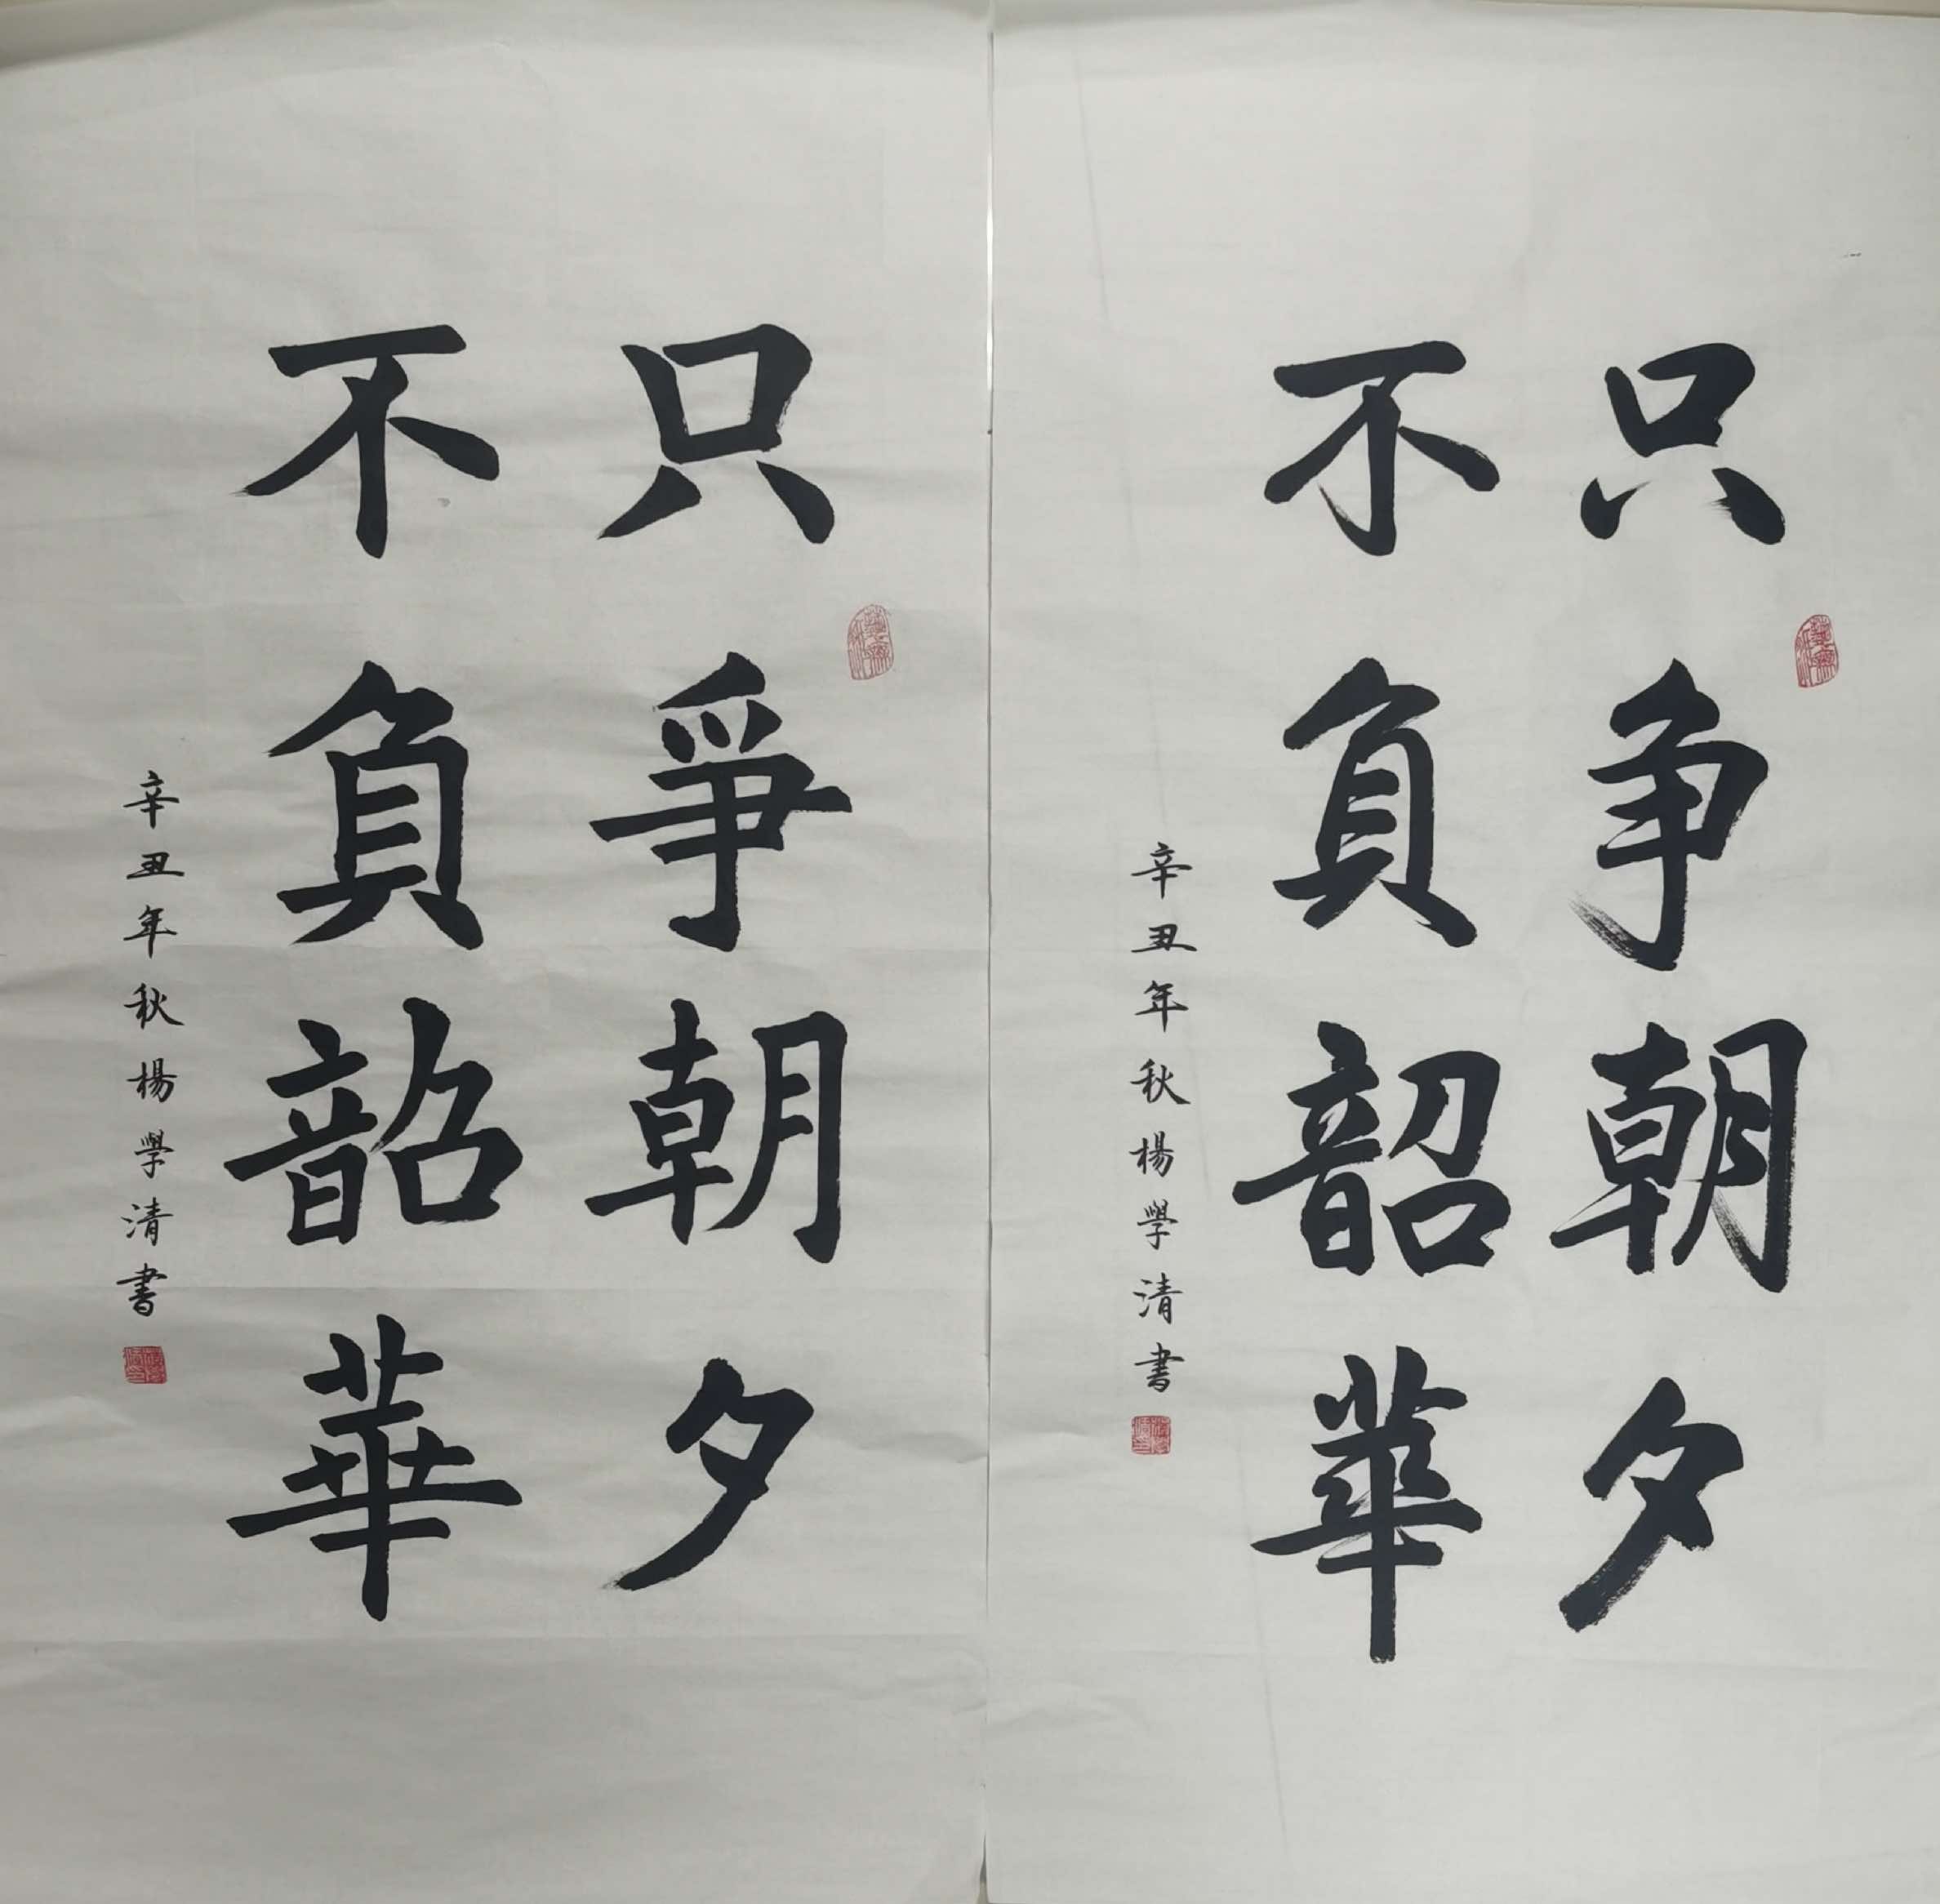 只争朝夕
不負韶華
辛丑年秋楊學清書
只爭朝夕
不負韶華
辛丑年秋楊學清書